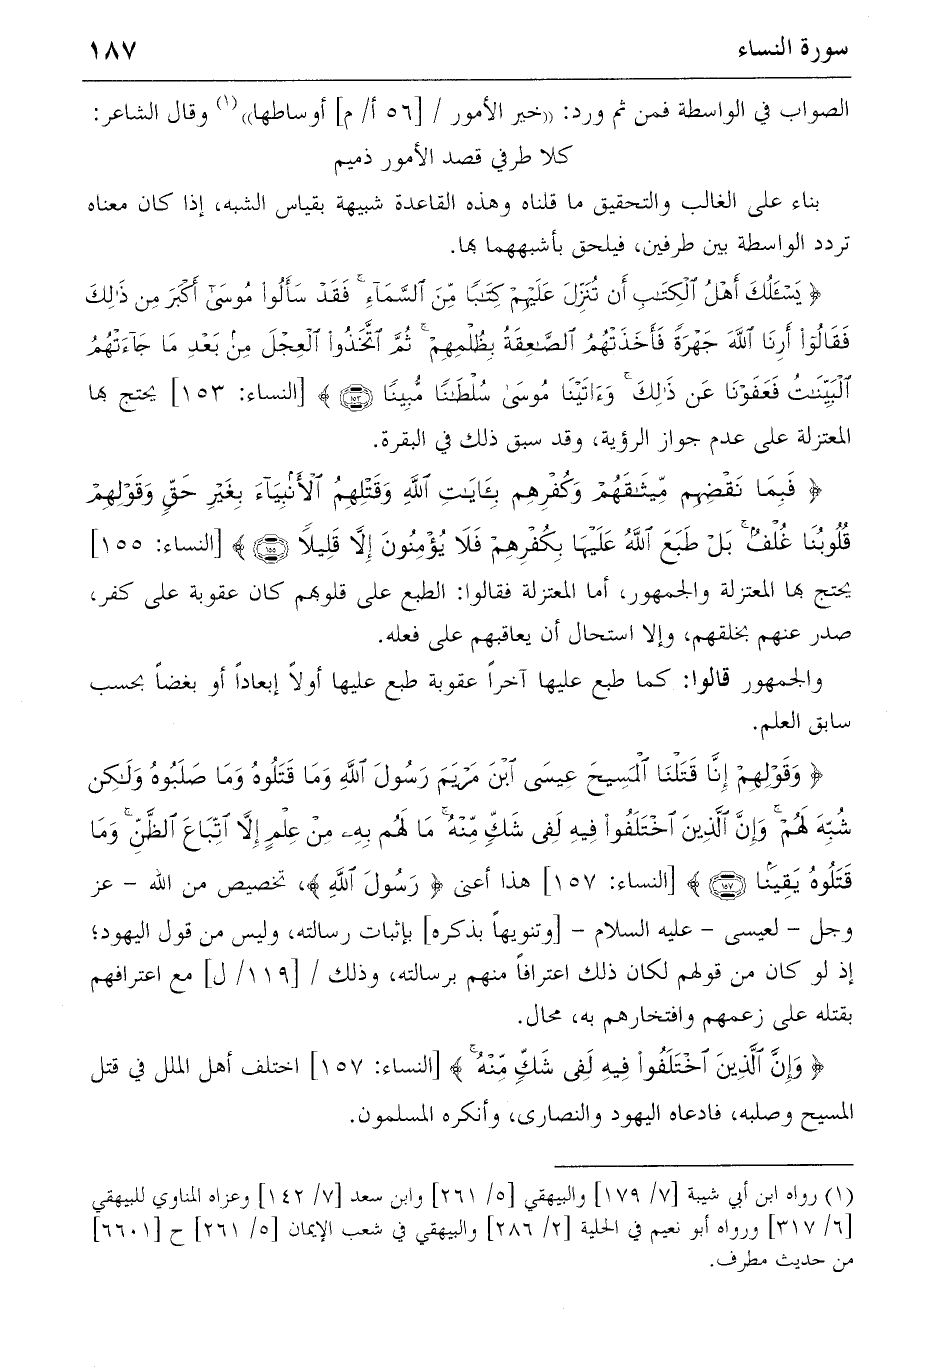 سورة النساء ١٨٧
الصواب في الواسطة فمن ثم ورد: ((خير الأمور / [٥٦ أ/ م] أوساطها))(١) وقال الشاعر:
كلا طرفي قصد الأمور ذميم
بناء على الغالب والتحقيق ما قلناه وهذه القاعدة شبيهة بقياس الشبه، إذا كان معناه
تردد الواسطة بين طرفين، فيلحق بأشبههما بها.
﴿ يَسْـَٔلُكَ أَهْلُ ٱلْكِتَٰبِ أَن تُنَزِّلَ عَلَيْهِمْ كِتَٰبًا مِّنَ ٱلسَّمَآءِ ۚ فَقَدْ سَأَلُوا۟ مُوسَىٰٓ أَكْبَرَ مِن ذَٰلِكَ
فَقَالُوٓا۟ أَرِنَا ٱللَّهَ جَهْرَةً فَأَخَذَتْهُمُ ٱلصَّٰعِقَةُ بِظُلْمِهِمْ ۚ ثُمَّ ٱتَّخَذُوا۟ ٱلْعِجْلَ مِنۢ بَعْدِ مَا جَآءَتْهُمُ
ٱلْبَيِّنَٰتُ فَعَفَوْنَا عَن ذَٰلِكَ ۚ وَءَاتَيْنَا مُوسَىٰ سُلْطَٰنًا مُّبِينًا (١٥٣) ﴾ [النساء: ١٥٣] يحتج بها
المعتزلة على عدم جواز الرؤية، وقد سبق ذلك في البقرة.
﴿ فَبِمَا نَقْضِهِم مِّيثَٰقَهُمْ وَكُفْرِهِم بِـَٔايَٰتِ ٱللَّهِ وَقَتْلِهِمُ ٱلْأَنۢبِيَآءَ بِغَيْرِ حَقٍّ وَقَوْلِهِمْ
قُلُوبُنَا غُلْفٌۢ ۚ بَلْ طَبَعَ ٱللَّهُ عَلَيْهَا بِكُفْرِهِمْ فَلَا يُؤْمِنُونَ إِلَّا قَلِيلًا (١٥٥) ﴾ [النساء: ١٥٥]
يحتج بها المعتزلة والجمهور، أما المعتزلة فقالوا: الطبع على قلوبهم كان عقوبة على كفر،
صدر عنهم بخلقهم، وإلا استحال أن يعاقبهم على فعله.
والجمهور قالوا: كما طبع عليها آخراً عقوبة طبع عليها أولاً إبعاداً أو بغضاً بحسب
سابق العلم.
﴿ وَقَوْلِهِمْ إِنَّا قَتَلْنَا ٱلْمَسِيحَ عِيسَى ٱبْنَ مَرْيَمَ رَسُولَ ٱللَّهِ وَمَا قَتَلُوهُ وَمَا صَلَبُوهُ وَلَٰكِن
شُبِّهَ لَهُمْ ۚ وَإِنَّ ٱلَّذِينَ ٱخْتَلَفُوا۟ فِيهِ لَفِى شَكٍّ مِّنْهُ ۚ مَا لَهُم بِهِۦ مِنْ عِلْمٍ إِلَّا ٱتِّبَاعَ ٱلظَّنِّ ۚ وَمَا
قَتَلُوهُ يَقِينًۢا (١٥٧) ﴾ [النساء: ١٥٧] هذا أعنى ﴿ رَسُولَ ٱللَّهِ ﴾، تخصيص من الله - عز
وجل - لعيسى - عليه السلام - [وتنويهاً بذكره] بإثبات رسالته، وليس من قول اليهود؛
إذ لو كان من قولهم لكان ذلك اعترافاً منهم برسالته، وذلك / [١١٩/ ل] مع اعترافهم
بقتله على زعمهم وافتخارهم به، محال.
﴿ وَإِنَّ ٱلَّذِينَ ٱخْتَلَفُوا۟ فِيهِ لَفِى شَكٍّ مِّنْهُ ۚ ﴾ [النساء: ١٥٧] اختلف أهل الملل في قتل
المسيح وصلبه، فادعاه اليهود والنصارى، وأنكره المسلمون.
(١) رواه ابن أبي شيبة [٧/ ١٧٩] والبيهقي [٥/ ٢٦١] وابن سعد [٧/ ١٤٢] وعزاه المناوي للبيهقي
[٦/ ٣١٧] ورواه أبو نعيم في الحلية [٢/ ٢٨٦] والبيهقي في شعب الإيمان [٥/ ٢٦١] ح [٦٦٠١]
من حديث مطرف.